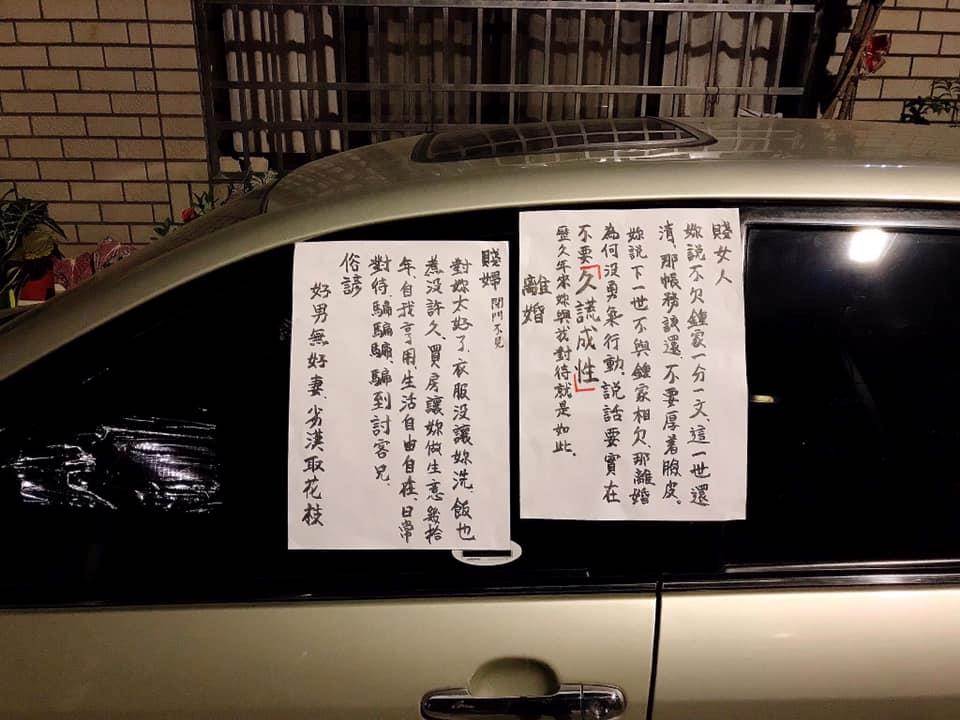 賤女人
妳說不欠鍾家一分一文、這一世還
清、那帳務該還、不要厚着臉皮。
妳說下一世不與鍾家相欠、那離婚
為何沒勇氣行動、說話要實在
不要「久謊成性」
歷久年來妳與我對待就是如此.
離婚
賤婦 閉門不見
對妳太好了、衣服沒讓妳洗、飯也
煮沒許久、買房讓妳做生意幾拾
年、自我享用、生活自由自在、日常
對待騙騙騙、騙到討客兄、
俗諺
好男無好妻、劣漢取花枝